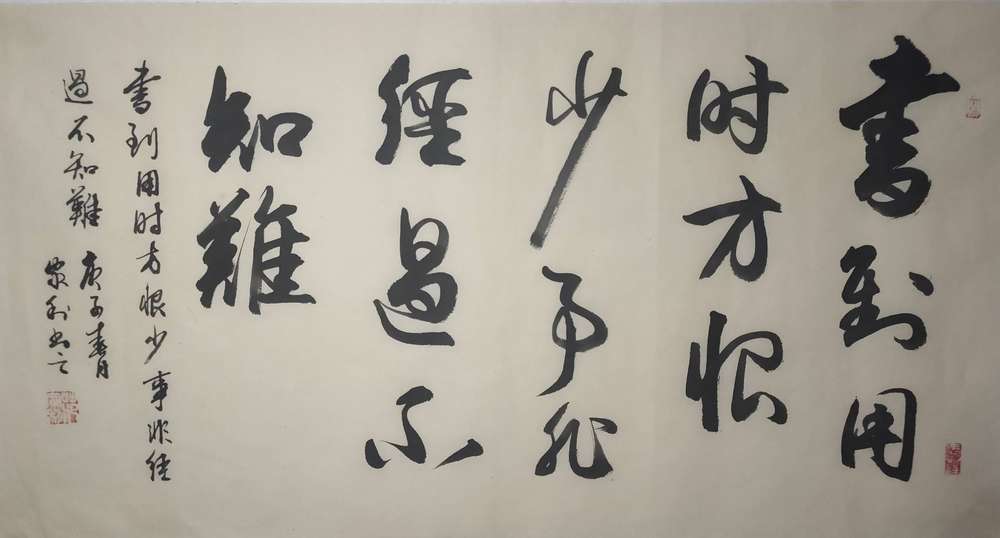 書到用
时方恨
少事非
經過不
知難
書到用时方恨少事非经
過不知難
庚子春月
家利书之